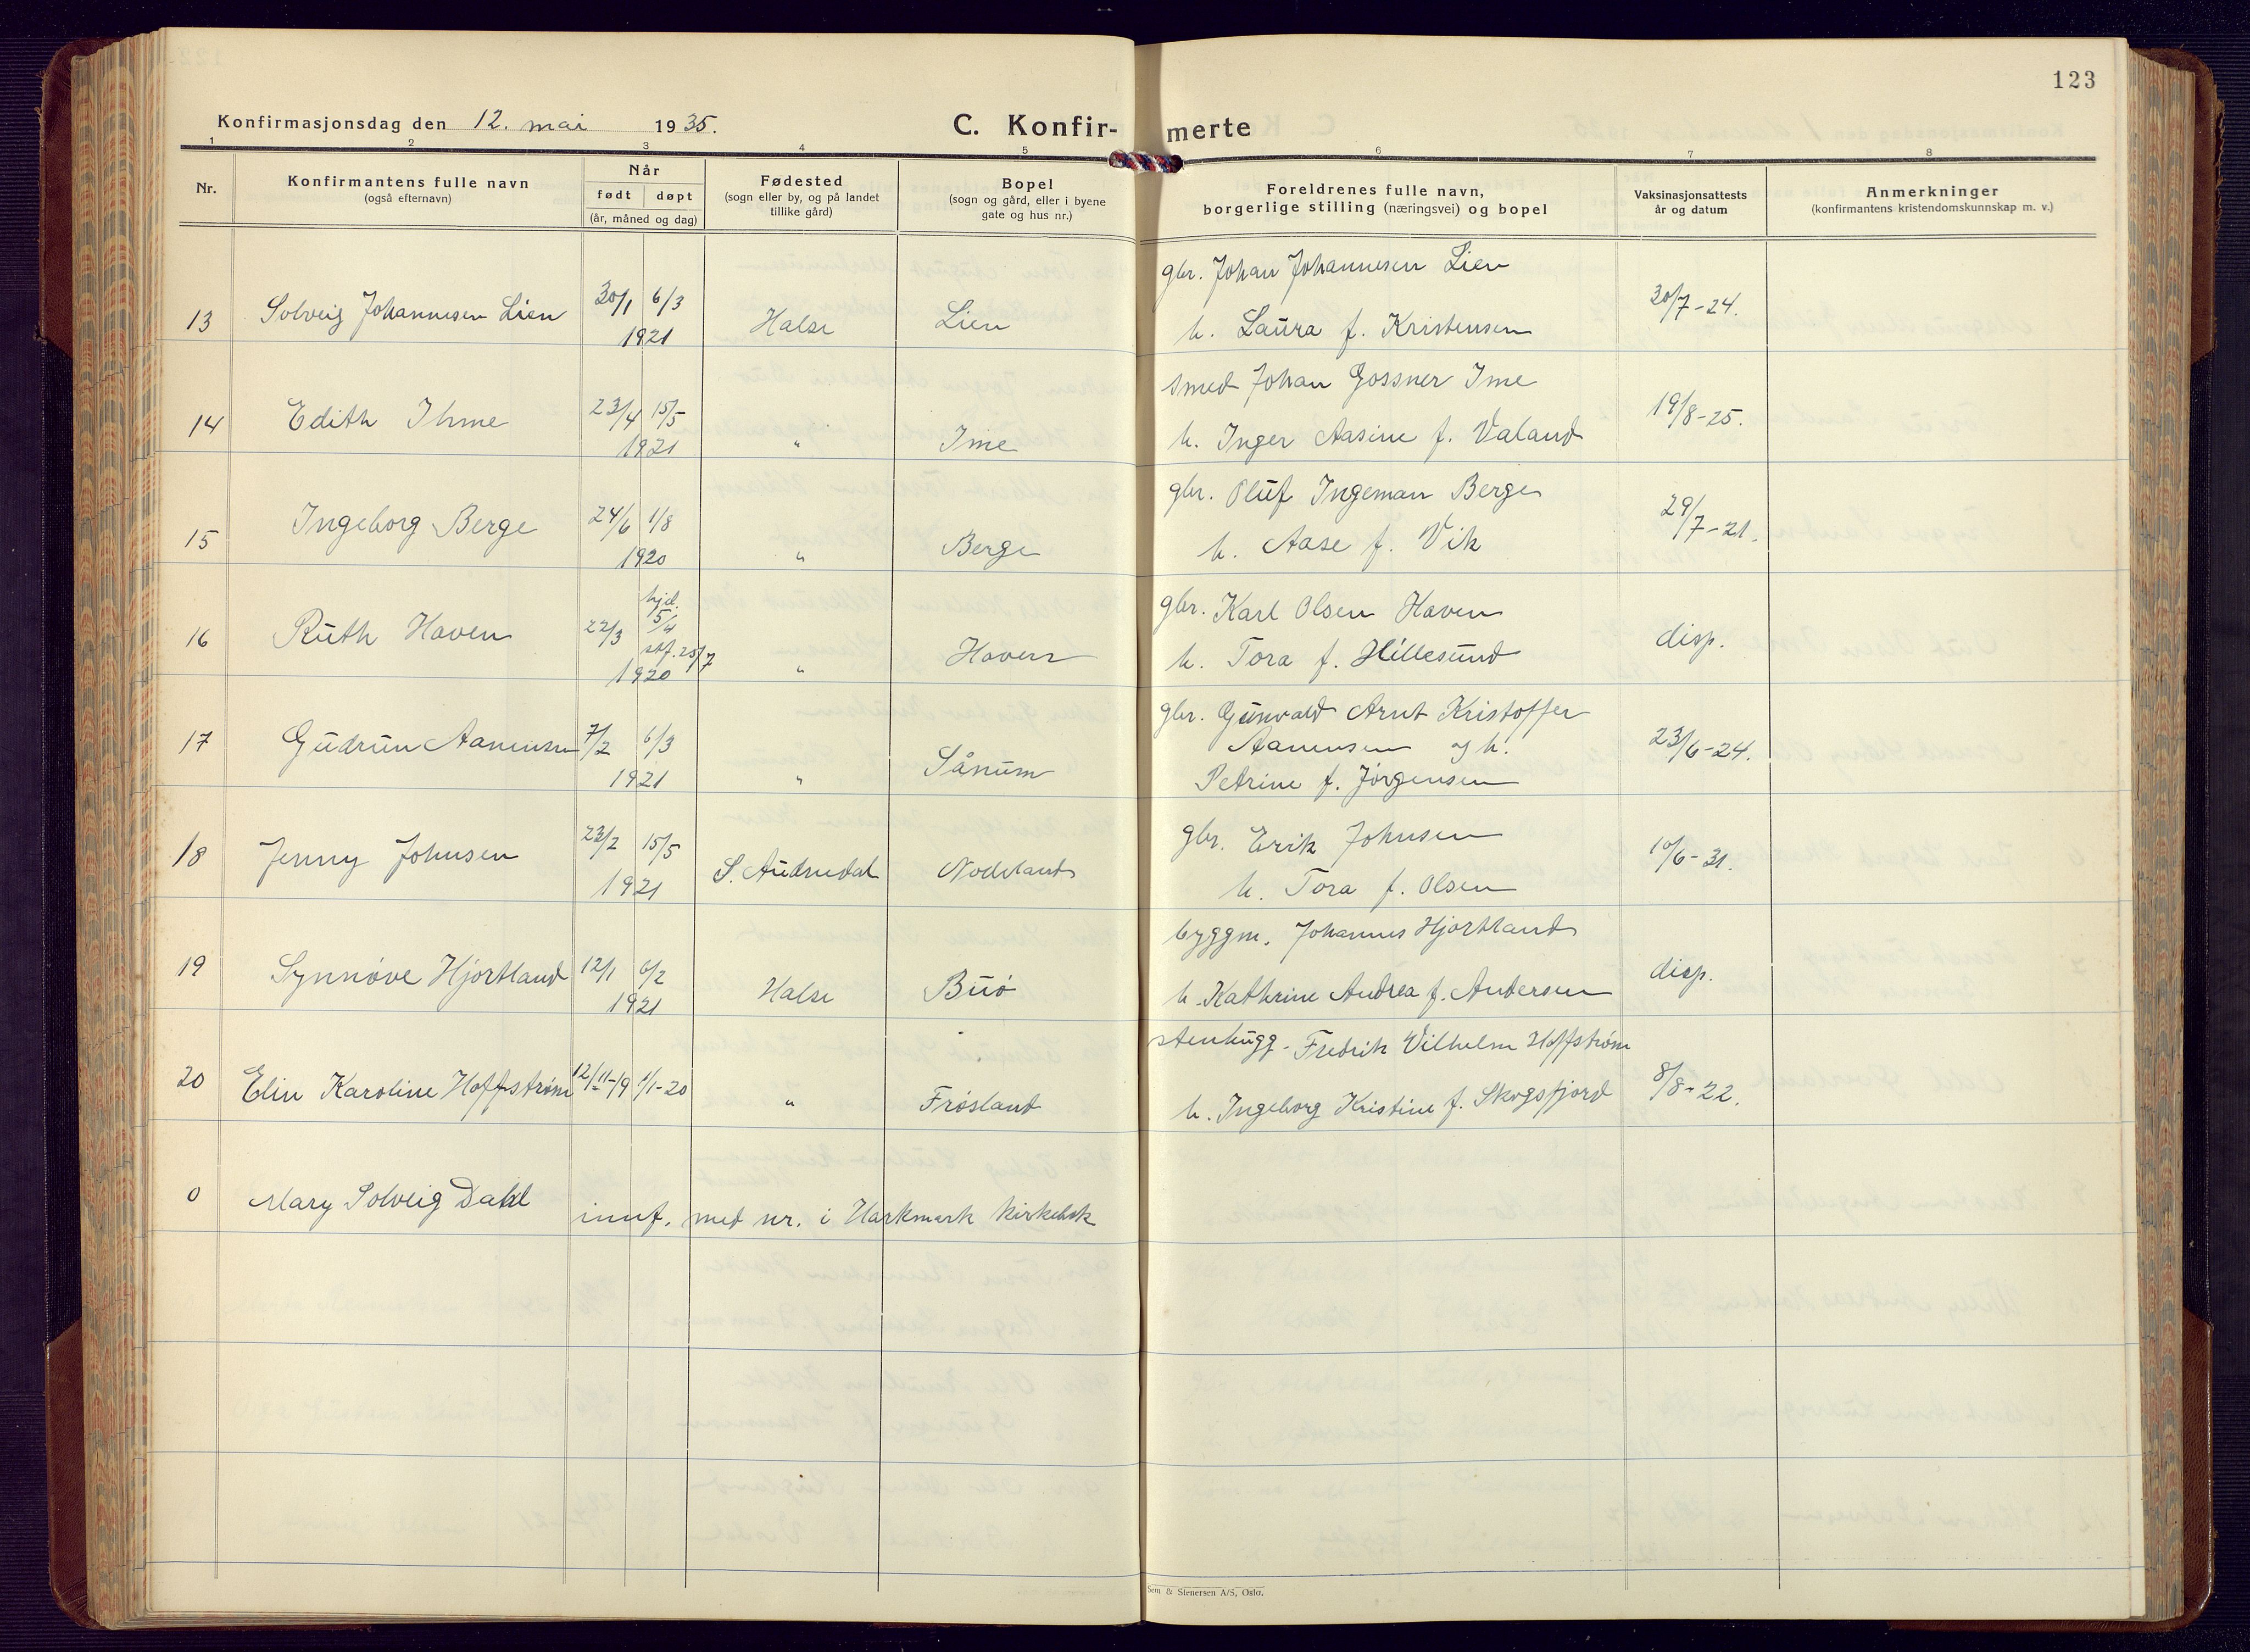 123
Konfirmasjonsdag den 12. mai 1935.
C. Konfir-merte
1 2 3 4 5 6 7 8
Nr.
Konfirmantens fulle navn
(også efternavn)
Når
født døpt
(år, måned og dag)
Fødested
(sogn eller by, og på landet
tillike gård)
Bopel
(sogn og gård, eller i byene
gate og hus nr.)
Foreldrenes fulle navn,
borgerlige stilling (næringsvei) og bopel
Vaksinasjonsattests
år og datum
Anmerkninger
(konfirmantens kristendomskunnskap m. v.)
gbr. Johan Johannesen Lien
13 Solveig Johannesen Lien 30/1 6/3 1921 Halse Lien 30/7-24.
h. Laura f. Kristensen
smed Johan Gossner Ime
14 Edith Ihme 23/4 15/5 1921 " Ime 19/8-25.
h. Inger Aasine f. Valand
gbr. Oluf Ingeman Berge
15 Ingeborg Berge 24/6 1/8 1920 " Berge 29/7-21.
h. Aase f. Vik
gbr. Karl Olsen Haven
16 Ruth Haven 22/3 hjd. 5/4 stf. 25/7 1920 " Haven disp.
h. Tora f. Hillesund
gbr. Gunvald Arnt Kristoffer
17 Gudrun Aanensen 7/2 6/3 1921 " Sånum 23/6-24.
Aanensen og h.
Petrine f. Jørgensen
gbr. Erik Johnsen
18 Jenny Johnsen 23/2 15/5 1921 S. Audnedal Nodeland 10/6-31.
h. Tora f. Olsen
byggm. Johannes Hjortland
19 Synnøve Hjortland 12/1 6/2 1921 Halse Buø disp.
h. Kathrine Andrea f. Andersen
stenhugg. Fredrik Vilhelm Hoffstrøm
20 Elin Karoline Hoffstrøm 12/11-19 1/1-20 " Frøsland 8/8-22.
h. Ingeborg Kristine f. Skogsfjord
0 Mary Solveig Dahl innf. med nr. i Harkmark kirkebok
Sem & Stenersen A/S, Oslo.